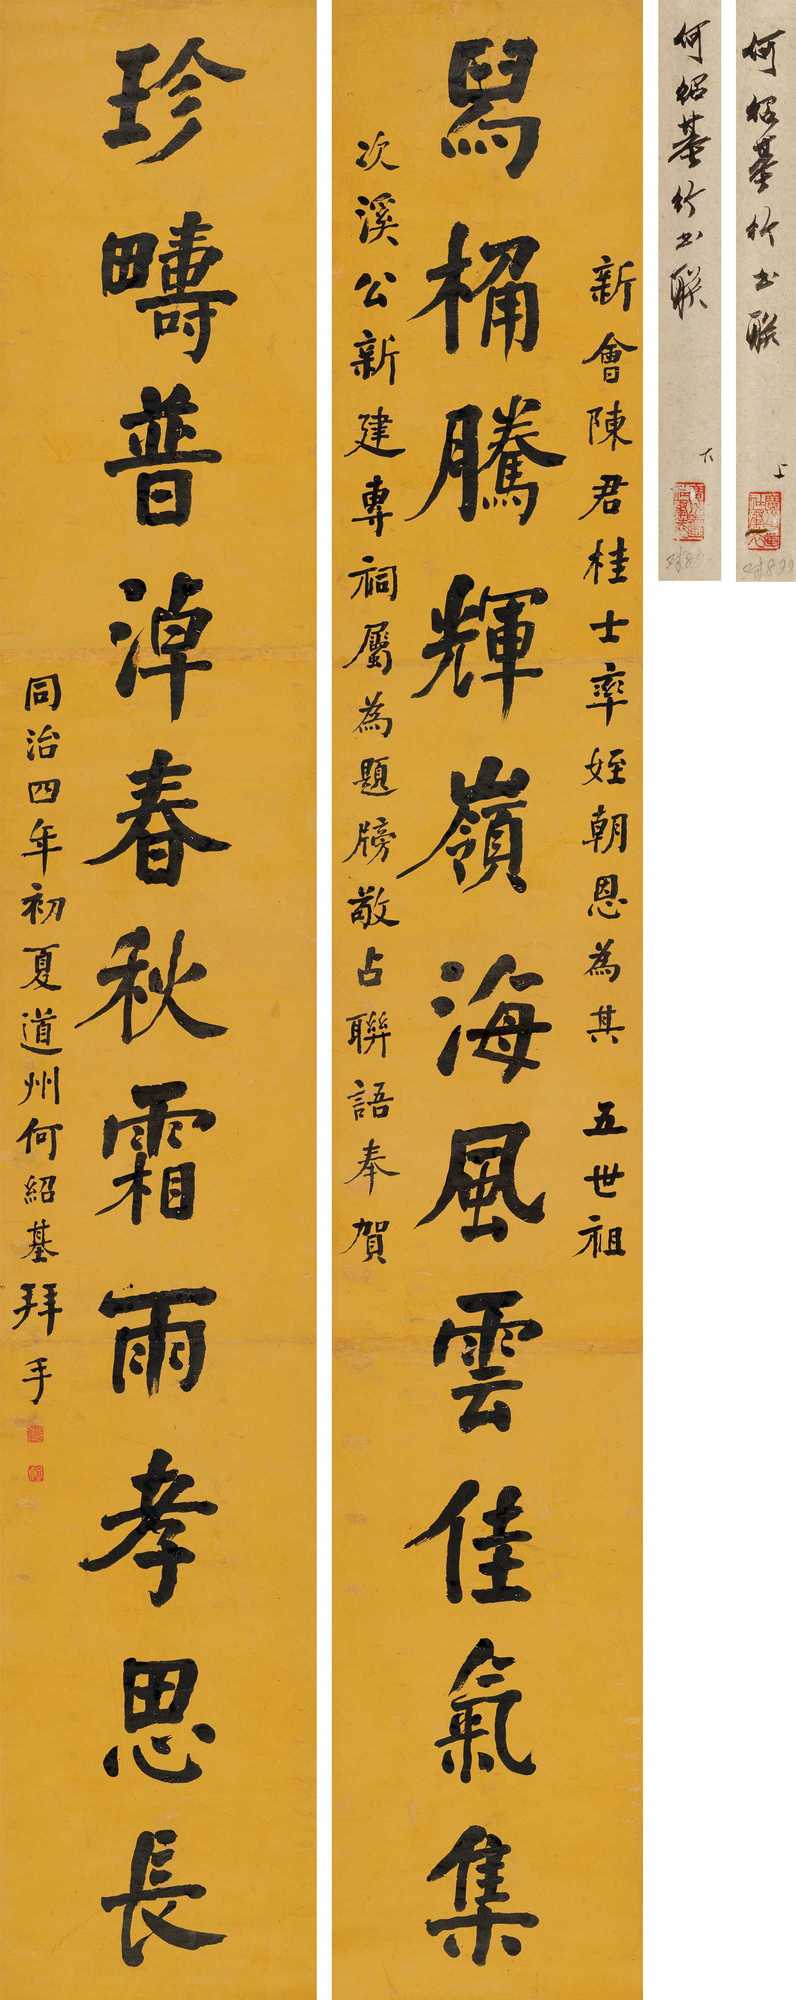 何紹基行书联 上
何紹基行书联 下
新會陳君桂士率姪朝恩為其 五世祖
舄桷騰輝嶺海風雲佳氣集
次溪公新建專祠屬為題牓敬占聯語奉賀
珍疇普淖春秋霜雨孝思長
同治四年初夏道州何紹基拜手